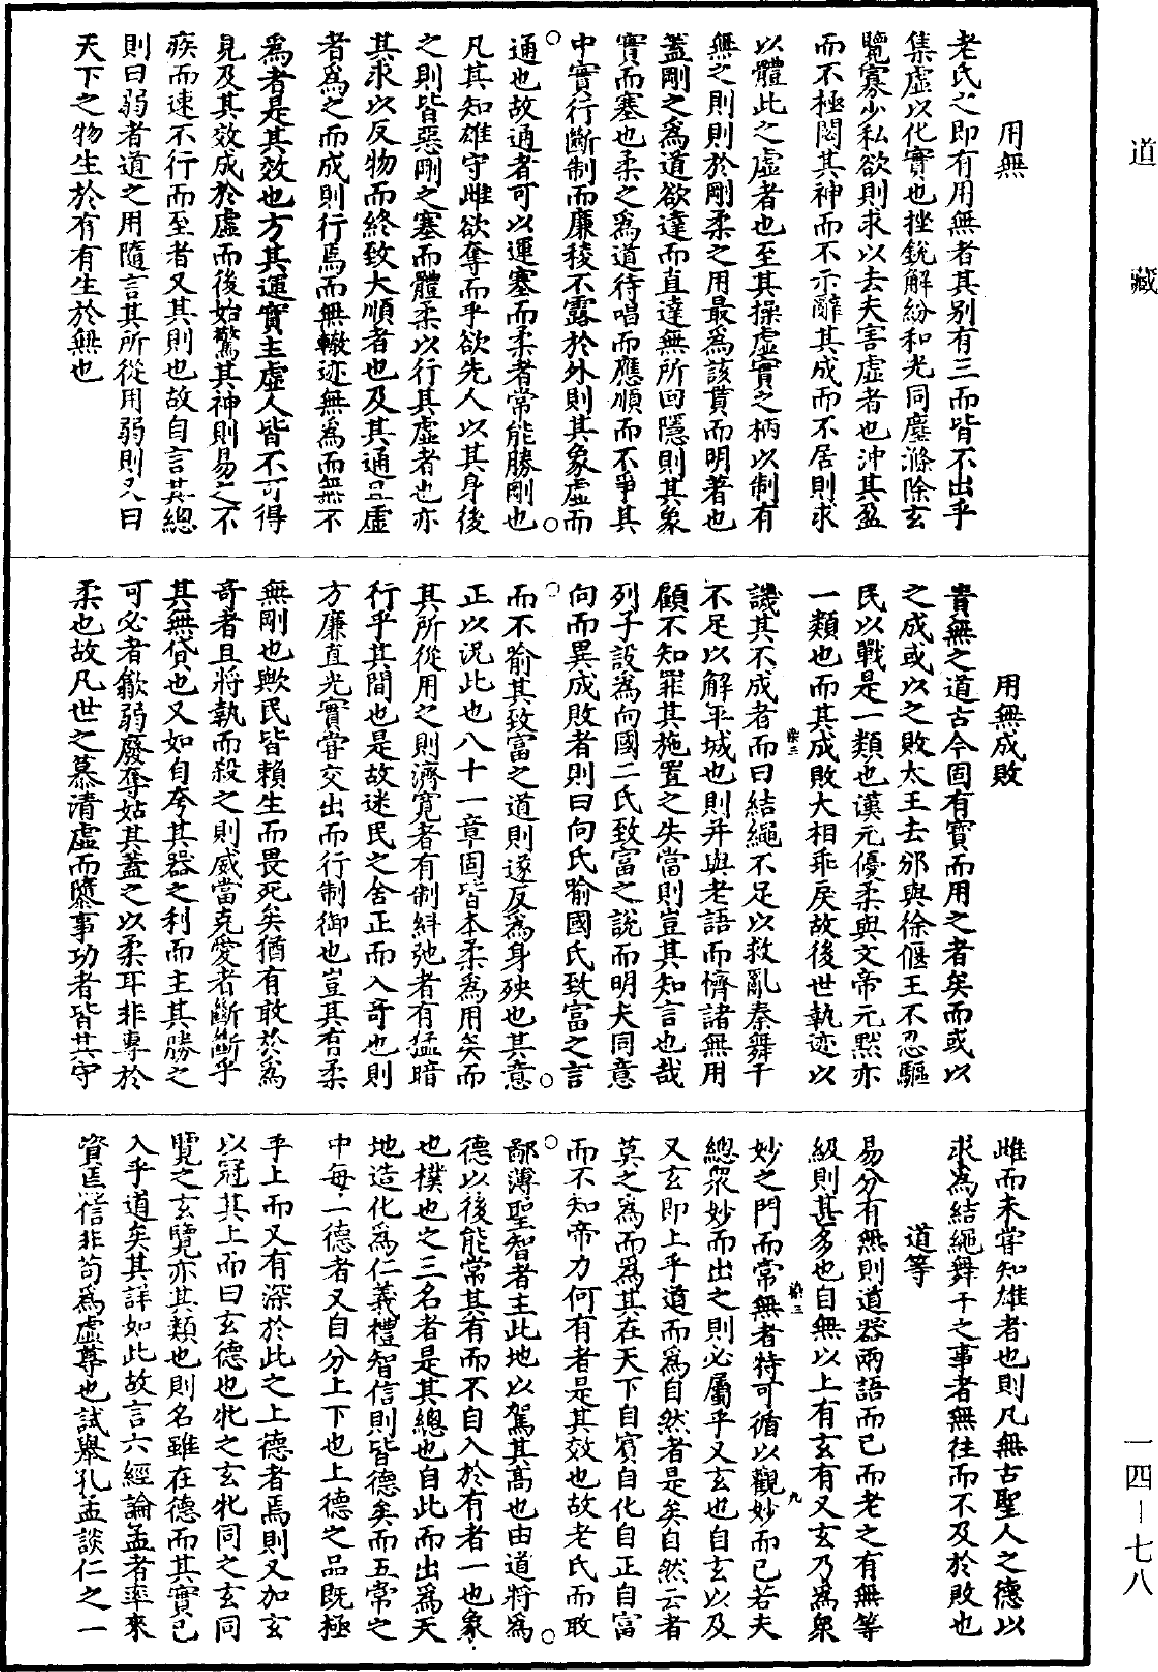 道藏
用無
老氏之即有用無者其别有三而皆不出乎
集虛以化實也挫銳解紛和光同塵滌除玄
覽寡少私欲則求以去夫害虛者也沖其盈
而不極閟其神而不示辭其成而不居則求
以體此之虛者也至其操虛實之柄以制有
無之則則於剛柔之用最為該貫而明著也
蓋剛之為道欲達而直達無所回隱則其象
實而塞也柔之為道待唱而應順而不爭其
中實行斷制而廉稜不露於外則其象虛而
通也故通者可以運塞而柔者常能勝剛也
凡其知雄守雌欲奪而予欲先人以其身後
之則皆惡剛之塞而體柔以行其虛者也亦
其求以反物而終致大順者也及其通且虛
者為之而成則行焉而無轍迹無為而無不
為者是其效也方其運實主虛人皆不可得
見及其效成於虛而後始驚其神則易之不
疾而速不行而至者又其則也故自言其總
則曰弱者道之用隨言其所從用弱則又曰
天下之物生於有有生於無也
用無成敗
貴無之道古今固有實而用之者矣而或以
之成或以之敗太王去邠與徐偃王不忍驅
民以戰是一類也漢元優柔與文帝元默亦
一類也而其成敗大相乖戾故後世執迹以
譏其不成者而曰結繩不足以救亂秦舞干
不足以解平城也則并與老語而擠諸無用
顧不知罪其施置之失當則豈其知言也哉
列子設為向國二氏致富之說而明夫同意
向而異成敗者則曰向氏喻國氏致富之言
而不喻其致富之道則遂反為身殃也其意
正以況此也八十一章固皆本柔為用矣而
其所從用之則濟寬者有制糾弛者有猛暗
行乎其間也是故迷民之舍正而入奇也則
方廉直光實甞交出而行制御也豈其有柔
無剛也歟民皆賴生而畏死矣猶有敢於為
奇者且將執而殺之則威當克愛者斷斷乎
其無貸也又如自夸其器之利而主其勝之
可必者歙弱廢奪姑其蓋之以柔耳非專於
柔也故凡世之慕清虛而隳事功者皆其守
雌而未甞知雄者也則凡無古聖人之德以
求為結繩舞干之事者無往而不及於敗也
道等
易分有無則道器兩語而已而老之有無等
級則甚多也自無以上有玄有又玄乃為衆
妙之門而常無者特可循以觀妙而已若夫
總衆妙而出之則必屬乎又玄也自玄以及
又玄即上乎道而為自然者是矣自然云者
莫之為而為其在天下自賓自化自正自富
而不知帝力何有者是其效也故老氏而敢
鄙薄聖智者主此地以駕其高也由道將為
德以後能常其有而不自入於有者一也象
也樸也之三名者是其總也自此而出為天
地造化為仁義禮智信則皆德矣而五常之
中每一德者又自分上下也上德之品既極
乎上而又有深於此之上德者焉則又加玄
以冠其上而曰玄德也牝之玄牝同之玄同
覽之玄覽亦其類也則名雖在德而其實已
入乎道矣其詳如此故言六經論孟者率來
資匹信非苟為虛尊也試舉孔孟談仁之一
染三
染三
九
一四—七八